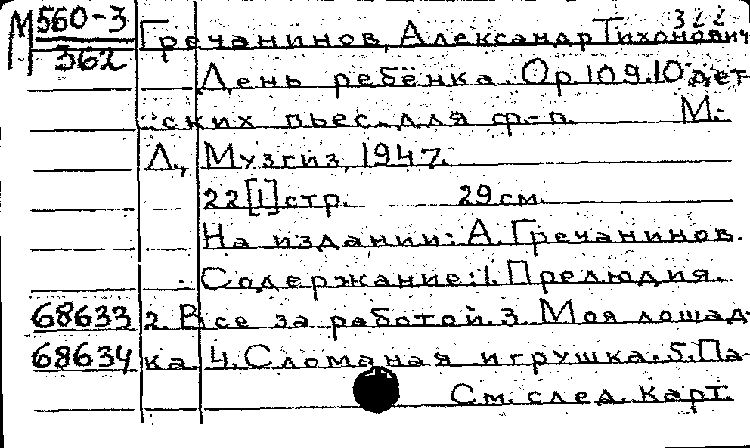 322
М 560-3
362
Гречанинов, Александр Тихонович
День ребёнка. Ор 109. 10 дет-
ских пьес для ф-п. М.-
Л., Музгиз, 1947.
22 [1] стр. 29 см.
На издании: А. Гречанинов.
Содержание: 1. Прелюдия.
68633 2. Все за работой. 3. Моя лошад-
68634 ка 4. Сломаная игрушка. 5. Па-
См. след. карт.